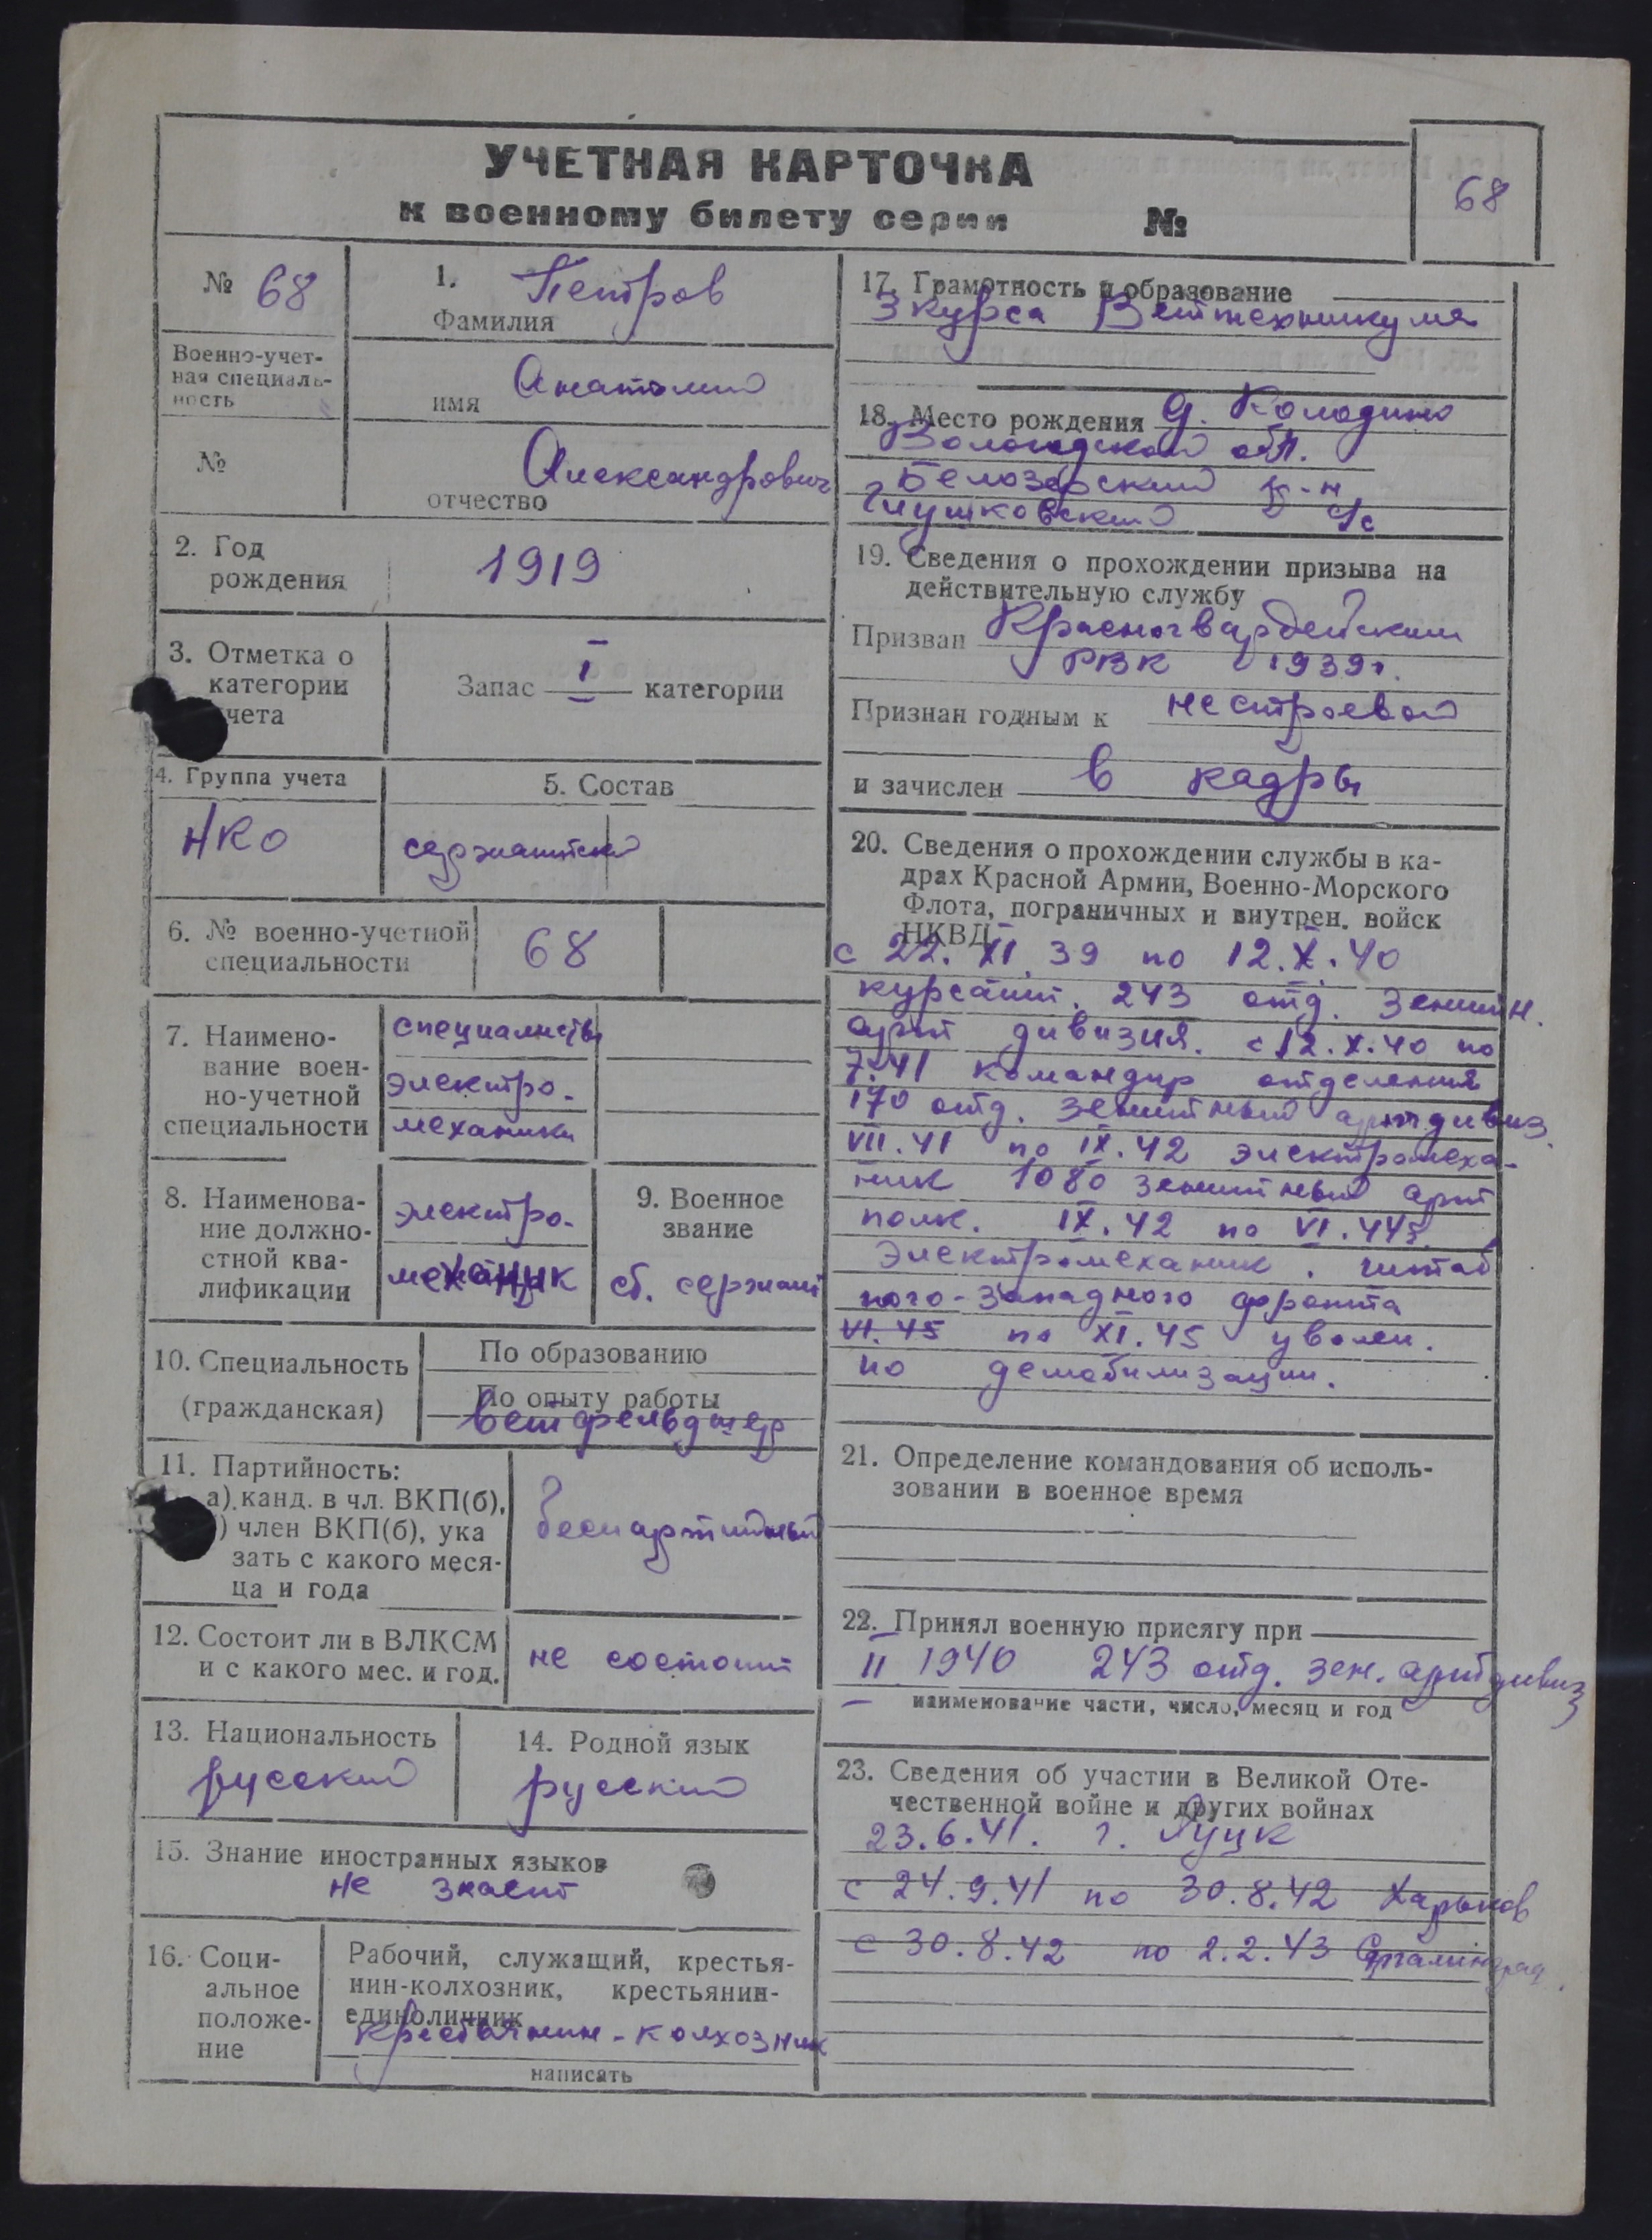 УЧЕТНАЯ КАРТОЧКА
к военному билету серии №
68
№ 68
1. Петров
Фамилия
Военно-учет-
ная специаль-
ность
Анатолий
имя
№
Александрович
отчество
2. Год
рождения
1919
3. Отметка о
категории
учета
Запас I категории
4. Группа учета
НКО
5. Состав
сержантский
6. № военно-учетной
специальности
68
7. Наимено-
вание воен-
но-учетной
специальности
специалисты
электро-
механики
8. Наименова-
ние должно-
стной ква-
лификации
электро-
механик
9. Военное
звание
ст. сержант
10. Специальность
(гражданская)
По образованию
По опыту работы
ветфельдшер
11. Партийность:
а) канд. в чл. ВКП(б),
) член ВКП(б), ука
зать с какого меся-
ца и года
беспартийный
12. Состоит ли в ВЛКСМ
и с какого мес. и год.
не состоит
13. Национальность
русский
14. Родной язык
русский
15. Знание иностранных языков
не знает
16. Соци-
альное
положе-
ние
Рабочий, служащий, крестья-
нин-колхозник, крестьянин-
единоличник
крестьянин-колхозник
написать
17. Грамотность и образование
3 курса Ветттехникума
18. Место рождения д. Колодино
Вологодской обл.
Белозерский р-н
Глушковский с/с
19. Сведения о прохождении призыва на
действительную службу
Призван Красногвардейским
РВК 1939г.
Признан годным к нестроевой
и зачислен в кадры
20. Сведения о прохождении службы в ка-
драх Красной Армии, Военно-Морского
Флота, пограничных и внутрен. войск
НКВД
с 22.XI.39 по 12.X.40
курсант. 243 отд. зенитн.
арт дивизия. с 12.X.40 по
7.41 командир отделения
170 отд. зенитный артдивиз.
VII.41 по IX.42 электромеха-
ник 1080 зенитный арт
полк. IX.42 по VI.44г.
Электромеханик. штаб
юго-западного фронта
VI.45 по XI.45 уволен.
по демобилизации.
21. Определение командования об исполь-
зовании в военное время
22. Принял военную присягу при
II 1940 243 отд. зен. артдивиз
наименование части, число, месяц и год
23. Сведения об участии в Великой Оте-
чественной войне и других войнах
23.6.41. г. Луцк
с 24.9.41 по 30.8.42 Харьков
с 30.8.42 по 2.2.43 Сталинград.